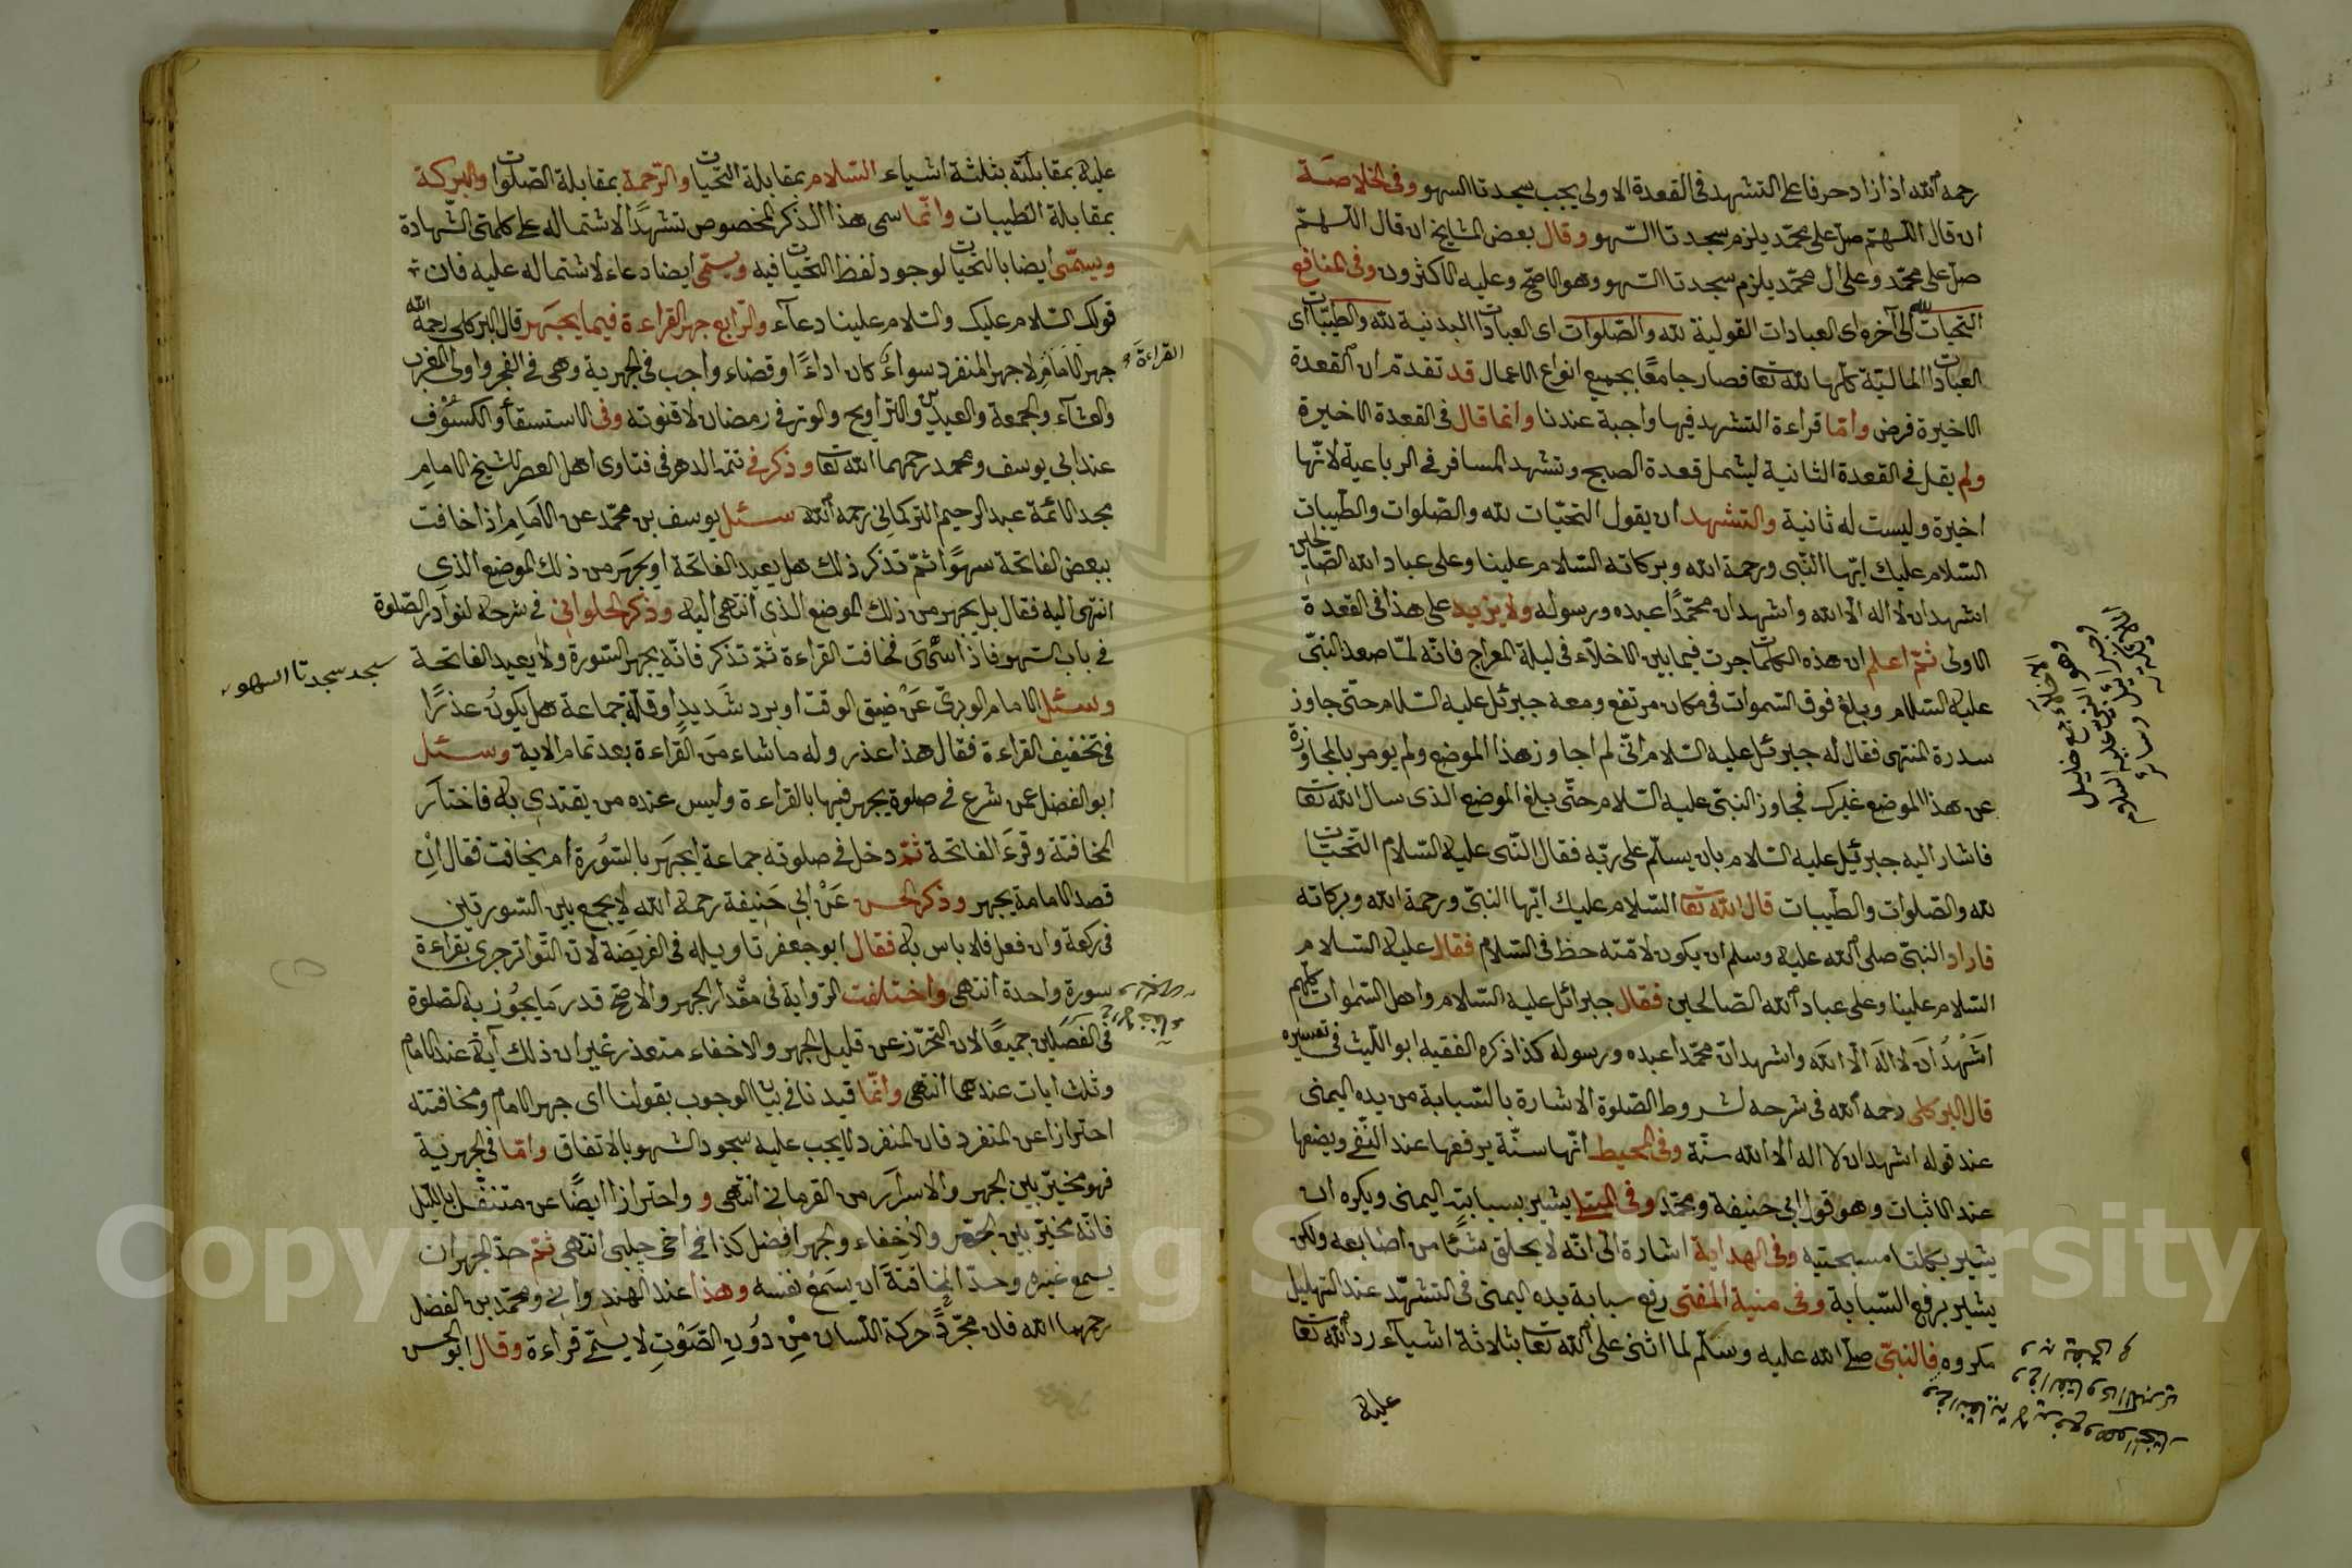 رحمه الله اذا زاد حرفا على التشهد فى القعدة الاولى يجب سجدتا السهو وفى الخلاصة
ان قال اللهم صل على محمد يلزم سجدتا السهو وقال بعض المشايخ ان قال اللهم
صل على محمد وعلى ال محمد يلزم سجدتا السهو وهو الاصح وعليه الاكثرون وفى المنافع
التحيات لله الى آخره اى العبادات القولية لله والصلوات اى العبادات البدنية لله والطيبات اى
العبادات المالية كلها لله تعا فصار جامعا بجميع انواع الاعمال قد تقدم ان القعدة
الاخيرة فرض واما قراءة التشهد فيها واجبة عندنا وانما قال فى القعدة الاخيرة
ولم يقل فى القعدة الثانية ليشمل قعدة الصبح وتشهد المسافر فى الرباعية لانها
اخيرة وليست له ثانية والتشهد ان يقول التحيات لله والصلوات والطيبات
السلام عليك ايها النبى ورحمة الله وبركاته السلام علينا وعلى عباد الله الصالحين
اشهد ان لا اله الا الله واشهد ان محمدا عبده ورسوله ولا يزيد على هذا فى القعدة
الاولى ثم اعلم ان هذه الكلمات جرت فيما بين الاخلاء فى ليلة المعراج فانه لما صعد النبى
عليه السلام وبلغ فوق السموات فى مكان مرتفع ومعه جبرئل عليه السلام حتى جاوز
سدرة المنتهى فقال له جبرئل عليه السلام انى لم اجاوز هذا الموضع ولم يومر بالمجاوزة
عن هذا الموضع غيرك فجاوز النبى عليه السلام حتى بلغ الموضع الذى سال الله تعا
فاشار اليه جبرئيل عليه السلام بان يسلم على ربه فقال النبى عليه السلام التحيات
لله والصلوات والطيبات قال الله تعا السلام عليك ايها النبى ورحمة الله وبركاته
فاراد النبى صلى الله عليه وسلم ان يكون لامته حظ فى السلام فقال عليه السلام
السلام علينا وعلى عباد الله الصالحين فقال جبرائل عليه السلام واهل السموات كلهم
اشهد ان لا اله الا الله واشهد ان محمدا عبده ورسوله كذا ذكره الفقيه ابو الليث فى تفسيره
قال البركلى رحمه الله فى شرحه لشروط الصلوة الاشارة بالسبابة من يده اليمنى
عند قوله اشهد ان لا اله الا الله سنة وفى المحيط انها سنة يرفعها عند النفى ويضعها
عند الاثبات وهو قول ابى حنيفة ومحمد وفى يشير بسبابته اليمنى ويكره ان
يشير بكلتا مسبحتيه وفى الهداية اشارة الى انه لا يحلق شئا من اصابعه ولكن
يشير برفع السبابة وفى منية المفتى رفع سبابة يده اليمنى فى التشهد عند التهليل
مكروه فالنبى صلى الله عليه وسلم لما اثنى على الله تعا بثلاثة اشياء رد الله تعا
عليه
عليه بمقابلته بثلثة اشياء السلام بمقابلة التحيات والرحمة بمقابلة الصلوات والبركة
بمقابلة الطيبات وانما سمى هذا الذكر المخصوص تشهدا لاشتماله على كلمتى الشهادة
ويسمى ايضا بالتحيات لوجود لفظ التحيات فيه ويسمى ايضا دعاء لاشتماله عليه فان
قولك السلام عليك والسلام علينا دعاء والرابع جهر القراءة فيما يجهر قال البركلى رحمه الله
جهر الامام لا جهر المنفرد سواء كان اداءً او قضاء واجب فى الجهرية وهى فى الفجر واولى المغرب
القراءة
والعشاء والجمعة والعيدين والتراويح والوتر فى رمضان لا قنوته وفى الاستسقاء والكسوف
عند ابى يوسف ومحمد رحمهما الله تعا وذكر فى تتمة الدهر فى فتاوى اهل العصر للشيخ الامام
مجد الائمة عبد الرحيم التركمانى رحمه الله سئل يوسف بن محمد عن الامام اذا خافت
ببعض الفاتحة سهوا ثم تذكر ذلك هل يعيد الفاتحة او يجهر من ذلك الموضع الذى
انتهى اليه فقال بل يجهر من ذلك الموضع الذى انتهى اليه وذكر الحلوانى فى شرحه لنوادر الصلوة
فى باب السهو فاذا سهى فخافت القراءة ثم تذكر فانه يجهر السورة ولا يعيد الفاتحة
سجد سجدتا السهو
وسئل الامام الوبرى عن ضيق الوقت او برد شديد او قلة جماعة هل يكون عذرا
فى تخفيف القراءة فقال هذا عذر وله ما شاء من القراءة بعد تمام الاية وسئل
ابو الفضل عمن شرع فى صلوة يجهر فيها بالقراءة وليس عنده من يقتدى به فاختار
المخافتة وقرء الفاتحة ثم دخل فى صلوته جماعة ايجهر بالسورة ام يخافت فقال ان
قصد الامامة يجهر وذكر الحسن عن ابى حنيفة رحمه الله لا يجمع بين السورتين
فى ركعة وان فعل فلا باس به فقال ابو جعفر تاويله فى الفريضة لان التواتر جرى بقراءة
سورة واحدة انتهى واختلفت الرواية فى مقدار الجهر والاصح قدر ما يجوز به الصلوة
فى الفصلين جميعا لان التحرز عن قليل الجهر والاخفاء متعذر غير ان ذلك آية عند الامام
وثلث ايات عندهما انتهى وانما قيدنا فى بيان الوجوب بقولنا اى جهر الامام ومخافتته
احترازا عن المنفرد فان المنفرد لا يجب عليه سجود السهو بالاتفاق واما فى الجهرية
فهو مخير بين الجهر والاسرار من القرمانى انتهى و واحترازا ايضا عن متنفل بالليل
فانه مخير بين الجهر والاخفاء والجهر افضل كذا فى اخى چلبى انتهى ثم حد الجهر ان
يسمع غيره وحد المخافتة ان يسمع نفسه وهذا عند الهندوانى ومحمد بن الفضل
رحمهما الله فان مجرد حركة اللسان من دون الصوت لا يسمى قراءة وقال ابو الحسن
Copyright © King Saud University